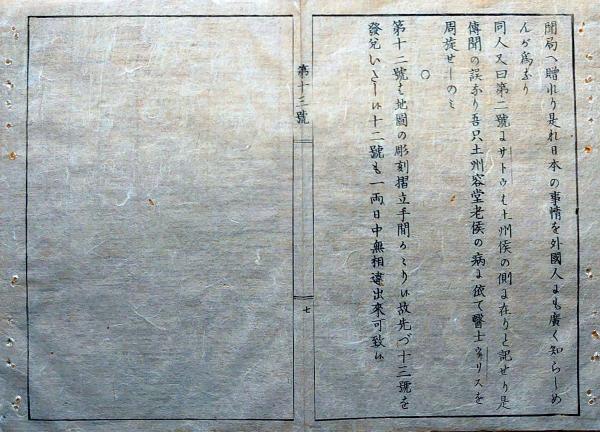 聞局へ贈れり是れ日本の事情を外國人にも廣く知らしめ
んが爲なり
同人又曰第二號にサトウも土州侯の側に在りと記せり是
傳聞の誤なり吾只土州容堂老侯の病に依て醫士ウリスを
周旋せしのミ
○
第十二號も地圖の彫刻摺立手間かゝり候故先づ十三號を
發兌いたし候十二號も一両日中無相違出來可致候
第十三號
七